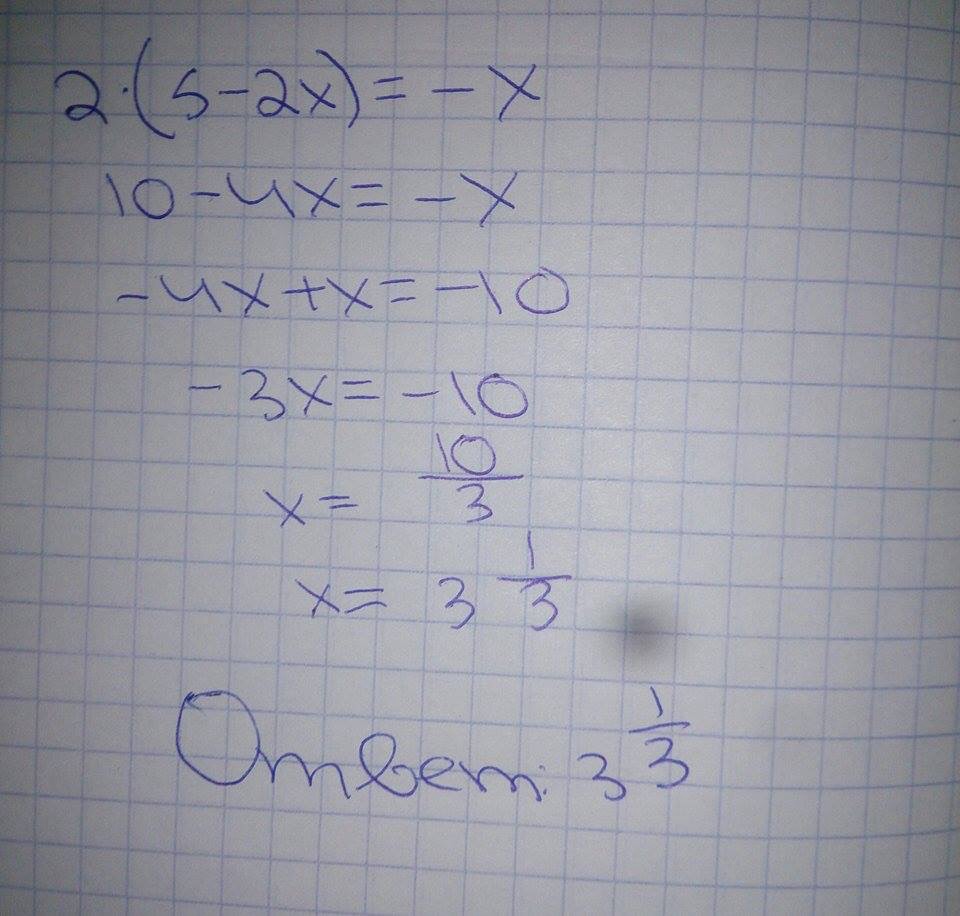 2·(5-2x)=-x
10-4x=-x
-4x+x=-10
-3x=-10
x= 10/3
x= 3 1/3
Ответ: 3 1/3